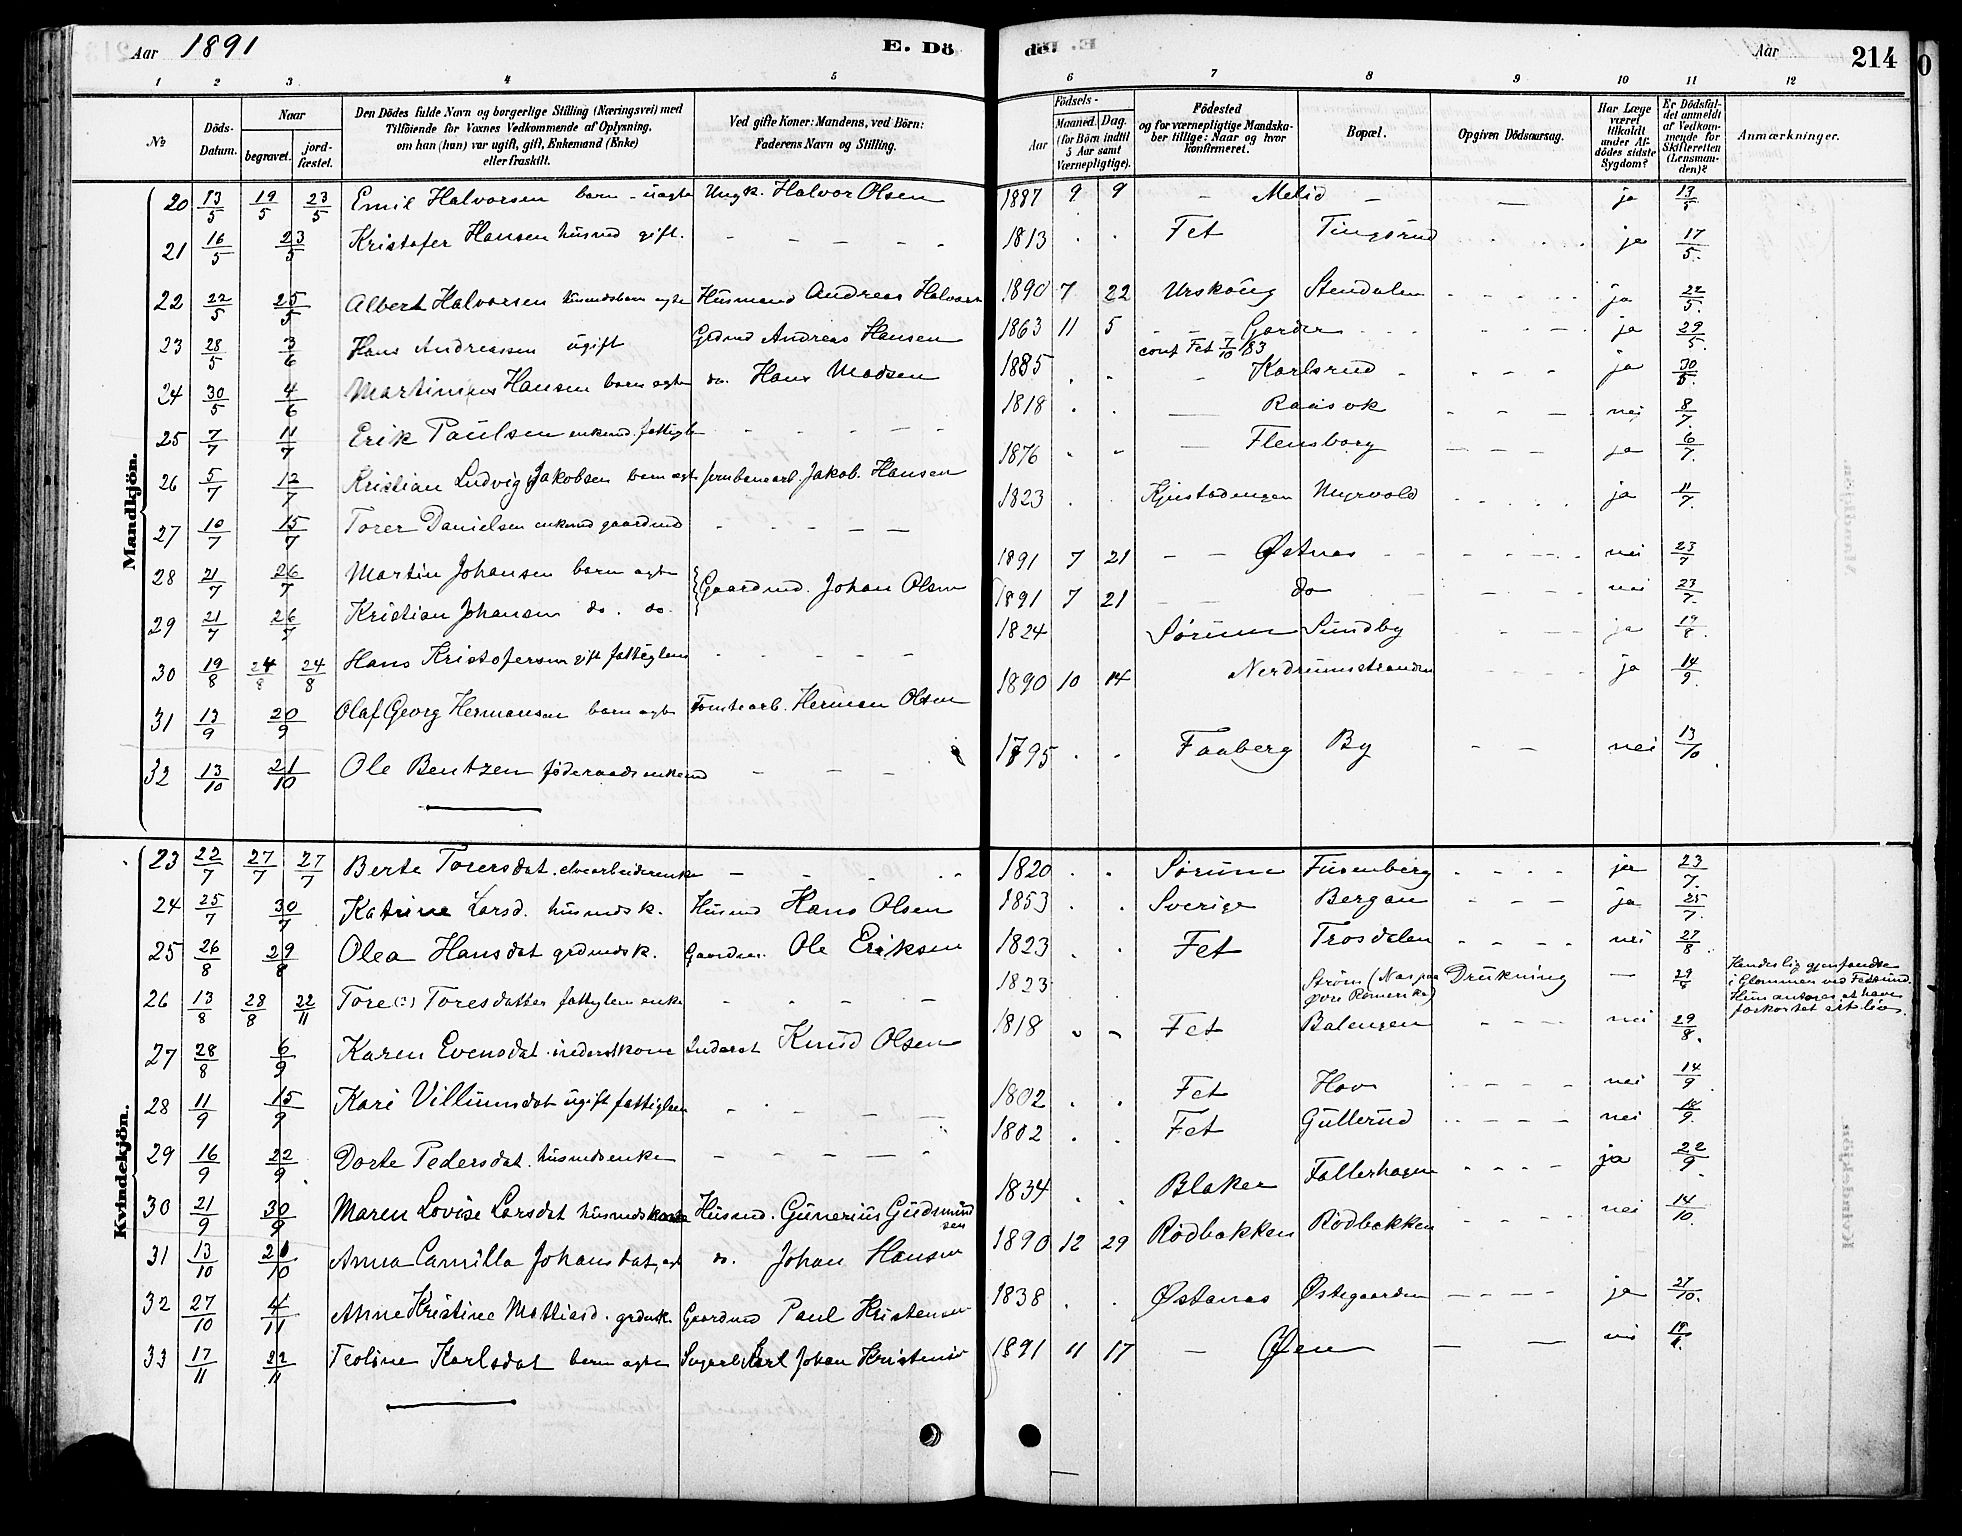 Aar 1891
E. Dö
dö. E.
Aar
214
1 2 3 4 5
6 7 8 9 10 11 12
No
Döds-Datum.
Naar
begravet.
jord-fæstet.
Den Dödes fulde Navn og borgerlige Stilling (Næringsvei) med
Tilföiende for Voxnes Vedkommende af Oplysning,
om han (hun) var ugift, gift, Enkemand (Enke)
eller fraskilt.
Ved gifte Koner: Mandens, ved Börn:
Faderens Navn og Stilling.
Födsels-
Aar
Maaned. Dag.
(for Börn indtil
5 Aar samt
Værnepligtige).
Födested
og for værnepligtige Mandska-
ber tillige: Naar og hvor
konfirmeret.
Bopæl.
Opgiven Dödsaarsag.
Har Læge
været
tilkaldt
under Af-
dödes sidste
Sygdom?
Er Dödsfal-
det anmeldt
af Vedkom-
mende for
Skifteretten
(Lensman-
den)?
Anmærkninger.
Mandkjön.
20 13/5 19/5 23/5 Emil Halvorsen barn - uagte Ungk. Halvor Olsen 1887 9 9 – Melid – — ja 13/5
21 16/5 23/5 Kristofer Hansen husmd gift. - - - - - 1813 . . Fet Tingsrud - - - ja 17/5
22 22/5 25/5 Albert Halvorsen husmdsbarn agte Husmand Andreas Halvors 1890 7 22 Urskoug Stendalen - - - - ja 22/5
23 28/5 3/6 Hans Andreassen ugift Grdmd Andreas Hansen 1863 11 5 - - Garder - - - ja 29/5
conf Fet 7/10 83
24 30/5 4/6 Martinius Hansen barn agte do. Hans Madsen 1885 . . – Karlsrud - - - ja 30/5
25 7/7 11/7 Erik Paulsen enkemd. fattigl - - - - 1818 . . — Raasok - - - nei 8/7
26 5/7 12/7 Kristian Ludvig Jakobsen barn agte jernbanearb. Jakob Hansen 1876 . . — Flensborg - - - ja 6/7
27 10/7 15/7 Torer Danielsen enkemd gaardmd - - - - 1823 . . Myrvold - - - ja 11/7
28 21/7 26/7 Martin Johansen barn agte Gaardmd. Johan Olsen 1891 7 21 - - Østnes - - - nei 23/7
29 21/7 26/7 Kristian Johansen do. do. 1891 7 21 - - do - - - nei 23/7
30 19/8 24/8 24/8 Hans Kristofersen gift fattiglem - - - - 1824 Sørum Sundby - - - ja 19/8
31 13/9 20/9 Olaf Georg Hermansen barn agte Tomtearb. Herman Olsen 1890 10 14 Nerdrumsstranden - - - ja 14/9
32 13/10 21/10 Ole Bentzen föderaadsenkemd - - - 1795 . . Faaberg By - - nei 13/10
Kvindekjön.
23 22/7 27/7 27/7 Berte Torersdat. elvearbeiderenke - - - - 1820 . . Sørum Fusenberg - - - - ja 23/7
24 25/7 30/7 Katrine Larsd. husmdsk. Husmd Hans Olsen 1853 . . Sverige Bergan - - - ja 25/7
25 26/8 29/8 Olea Hansdat grdmdsk. Gaardm. Ole Eriksen 1823 . . Fet Trosdalen - - - - nei 27/8
26 13/8 28/8 22/11 Tore(?) Toresdatter fattiglem enke - - - - 1823 . Strøm (Nes paa Drukning — 29/8 Hendes lig gjenfandtes
øvre Romerike) i Glommen ved Fetsund.
Hun antages at have
forkortet sit liv.
27 28/8 6/9 Karen Evensdat. inderstkone Inderst Knud Olsen 1818 . . Fet Balengen - - - nei 29/8
28 11/9 15/9 Kari Villumsdat ugift fattiglem - - - - 1802 . . Fet Hov - - - - nei 14/9
29 16/9 22/9 Dorte Pedersdat. husmdsenke - - - - - 1802 . . Fet Gullerud - - - - nei
30 21/9 30/9 Maren Lovise Larsdat husmdskone Husmd. Gunerius Gudmund
sen 1834 . . Blaker Fallerhagen - - - - ja 22/9
31 13/10 21/10 Anna Camilla Johansdat, agte do. Johan Hansen 1890 12 29 Rødbakken Rødbakken - - - - nei 14/10
32 27/10 4/11 Anne Kristine Mattiasd. grdmk. Gaardmd Paul Kristensen 1838 . . Østanes Østegaarden - - - - ja 27/10
33 17/11 22/11 Teoline Karlsdat barn agte Karl Johan Kristensen 1891 11 17 — Øien — —